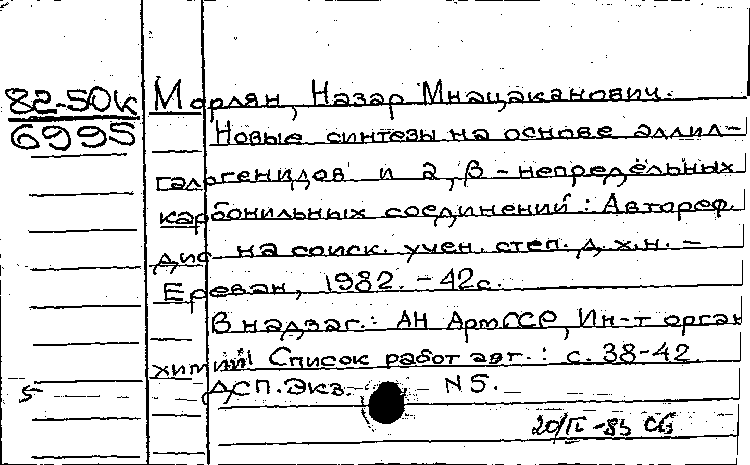 82-50к
6995
Морлян, Назар Мнацаканович.
Новые синтезы на основе аллил-
галогенидов и 2, β - непредельных
карбонильных соединений: Автореф.
дис на соиск. учен. степ. д.х.н. -
Ереван, 1982. - 42с.
В надзаг.: АН АрмССР, Ин-т орган
химии! Список работ авт.: с. 38-42.
ДСП. Экз. N 5.
5
20/IV-83